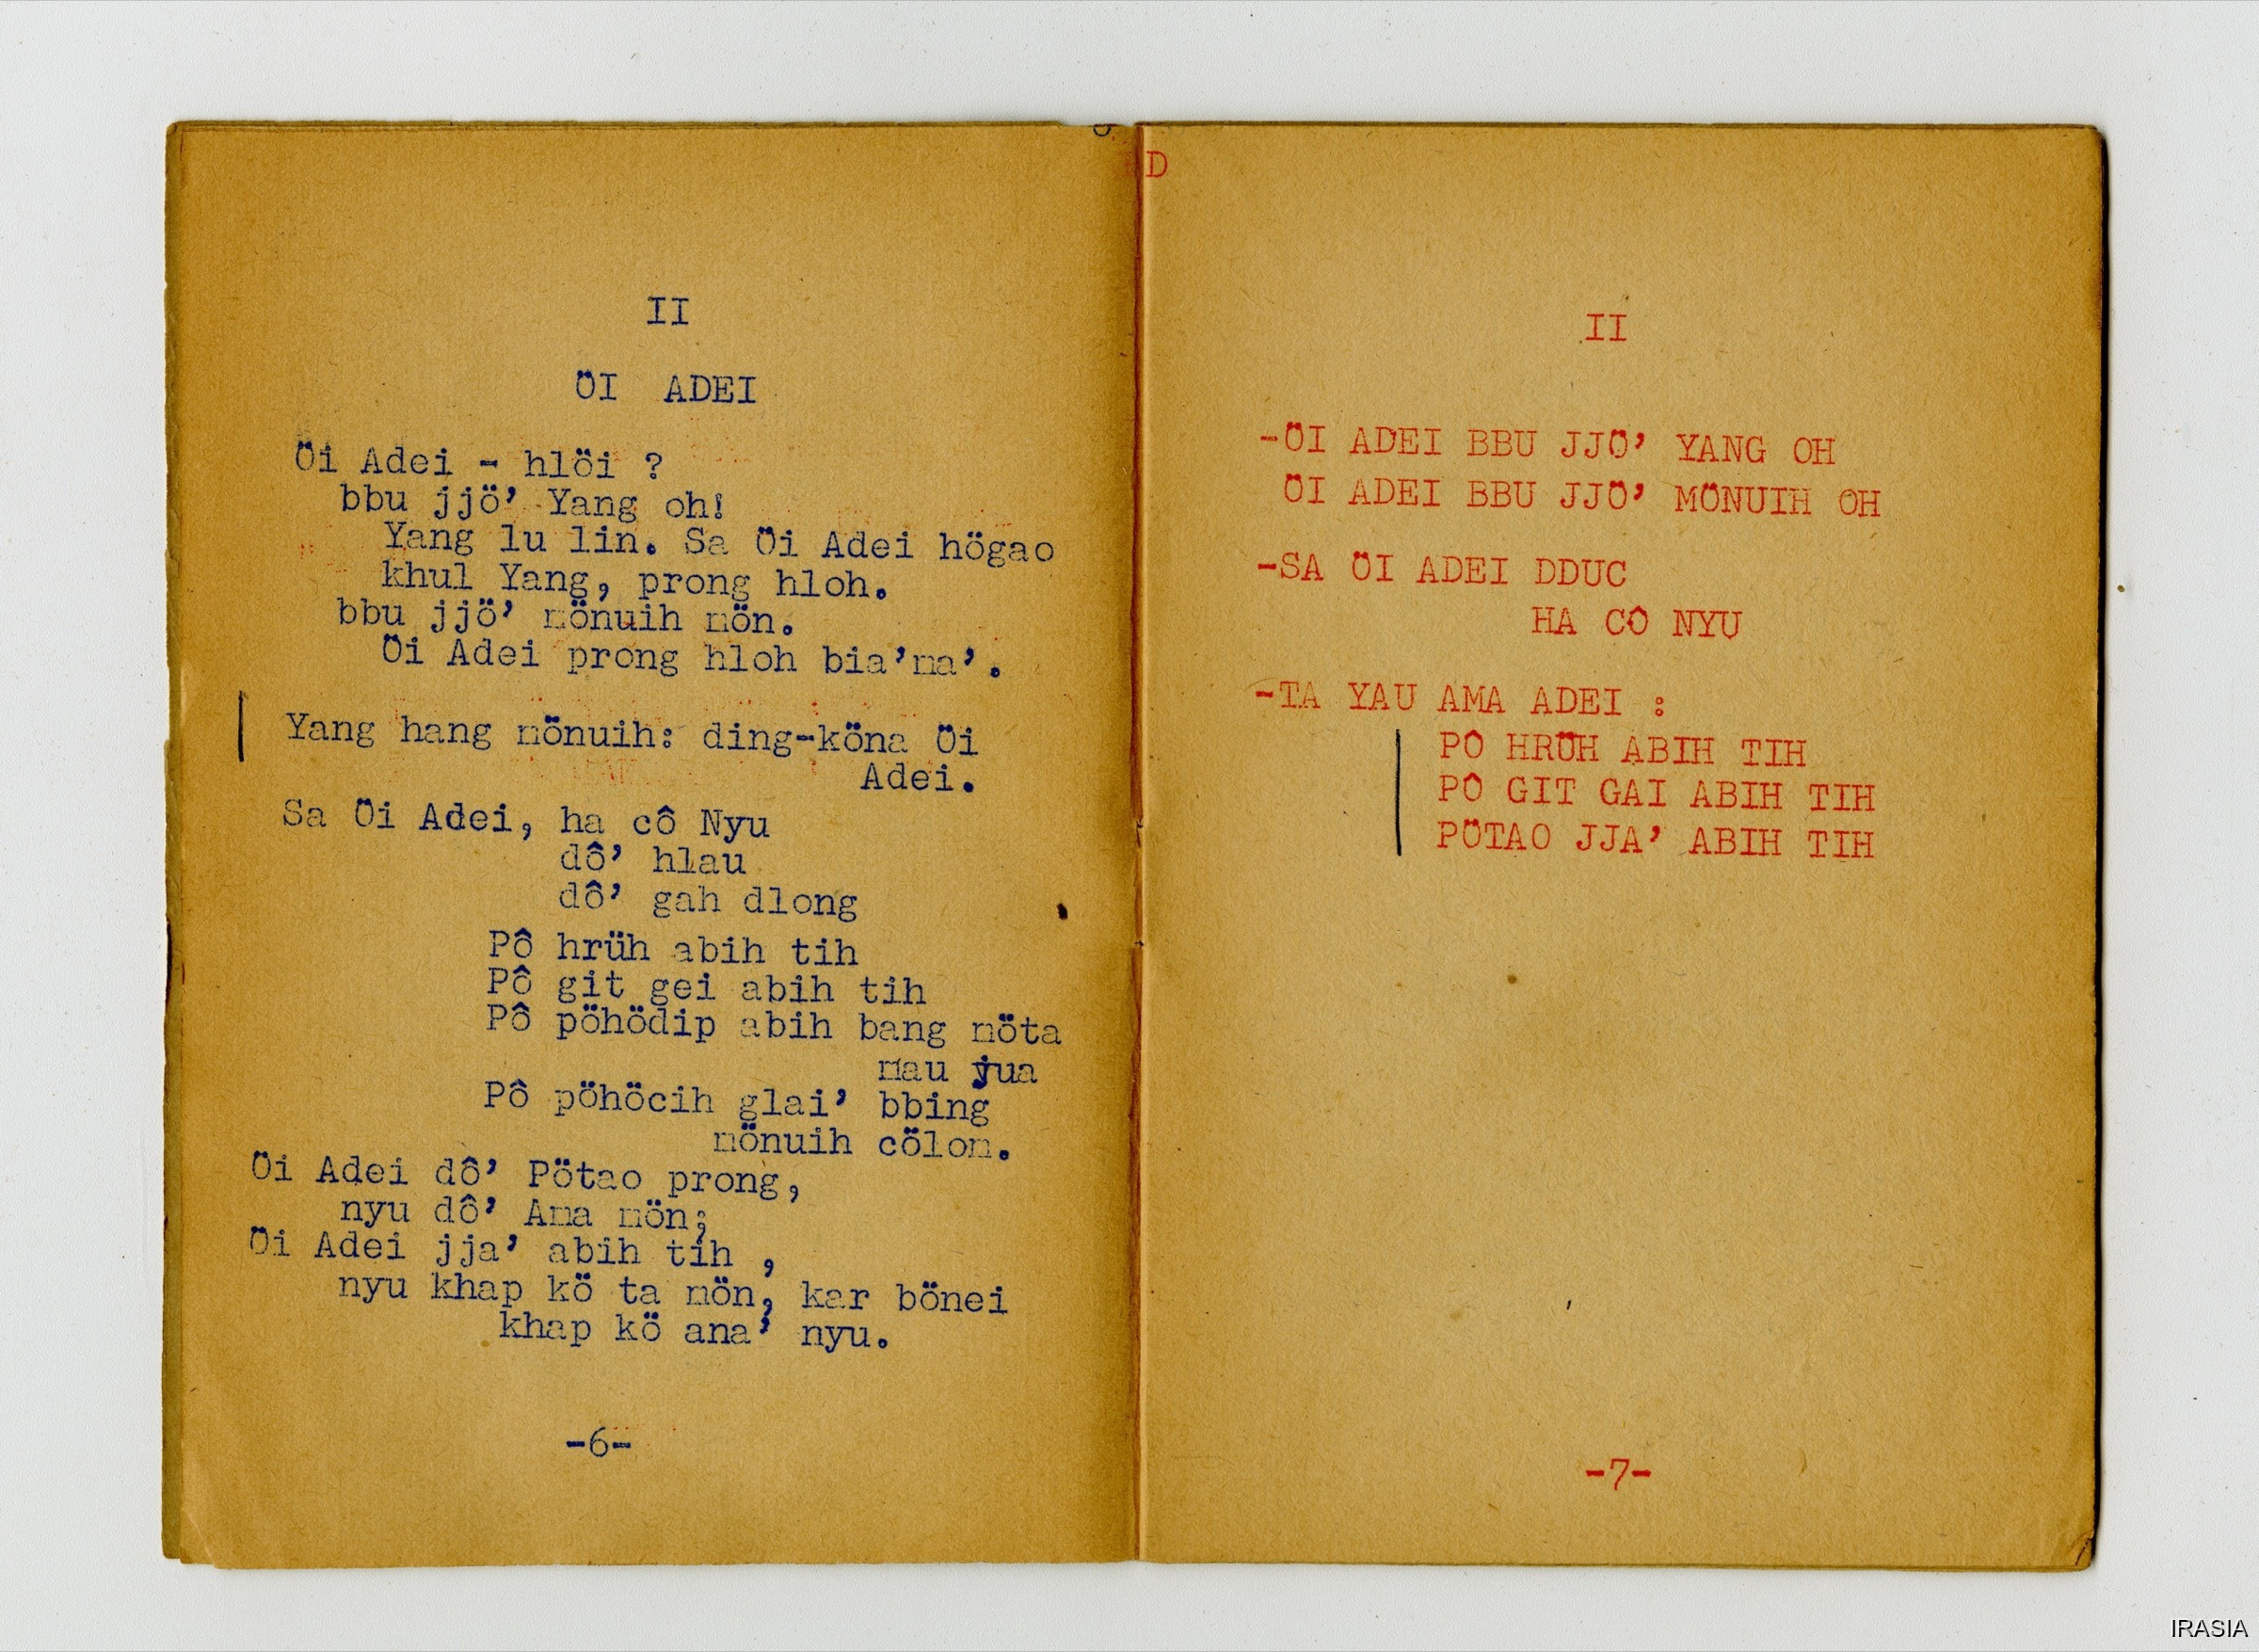 II
ÖI ADEI
Öi Adei - hlöi ?
bbu jjö’ Yang oh!
Yang lu lin. Sa Öi Adei högao
khul Yang, prong hloh.
bbu jjö’ mönuih mön.
Öi Adei prong hloh bia’ma’.
Yang hang mönuih: ding-köna Öi
Adei.
Sa Öi Adei, ha cô Nyu
dô’ hlau
dô’ gah dlong
Pô hrüh abih tih
Pô git gei abih tih
Pô pöhödip abih bang möta
mau yua
Pô pöhöcih glai’ bbing
mönuih cölom.
Öi Adei dô’ Pötao prong,
nyu dô’ Ama mön;
Öi Adei jja’ abih tih ,
nyu khap kö ta mön, kar bönei
khap kö ana’ nyu.
-6-
D
II
-ÖI ADEI BBU JJÖ’ YANG OH
ÖI ADEI BBU JJÖ’ MÖNUIH OH
-SA ÖI ADEI DDUC
HA CÔ NYU
-TA YAU AMA ADEI :
PÔ HRÜH ABIH TIH
PÔ GIT GAI ABIH TIH
PÖTAO JJA’ ABIH TIH
-7-
IRASIA